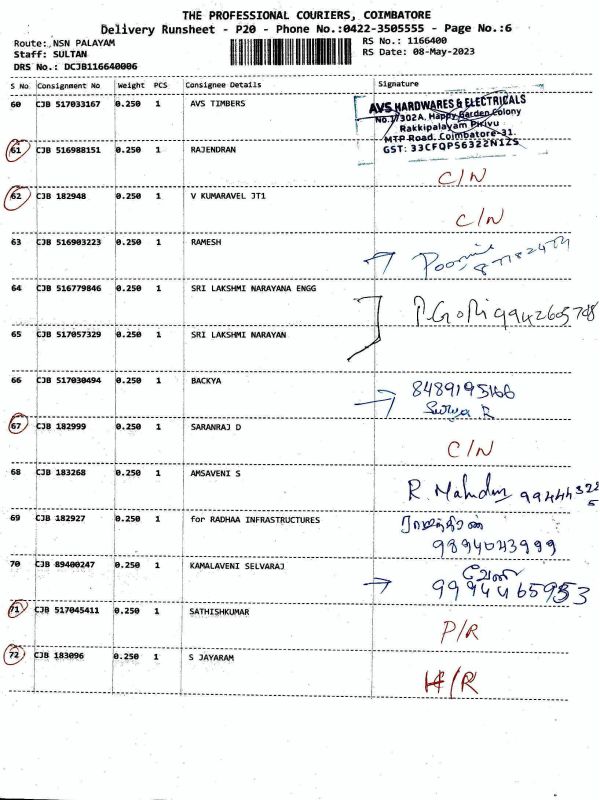 THE PROFESSIONAL COURIERS, COIMBATORE
Delivery Runsheet - P20 - Phone No.:0422-3505555 - Page No.:6
Route: NSN PALAYAM RS No.: 1166400
Staff: SULTAN RS Date: 08-May-2023
DRS No.: DCJB116640006
S No Consignment No Weight PCS Consignee Details Signature
60 CJB 517033167 0.250 1 AVS TIMBERS
AVS HARDWARES & ELECTRICALS
No.1/302A, Happy Garden Colony
Rakkipalayam Pirivu
MTP Road, Coimbatore-31.
GST: 33CFQPS6322N1ZS
61 CJB 516988151 0.250 1 RAJENDRAN
C/N
62 CJB 182948 0.250 1 V KUMARAVEL JT1
C/N
63 CJB 516903223 0.250 1 RAMESH
64 CJB 516779846 0.250 1 SRI LAKSHMI NARAYANA ENGG
P.GoPi 9942605748
65 CJB 517057329 0.250 1 SRI LAKSHMI NARAYAN
66 CJB 517030494 0.250 1 BACKYA
8489195166
Surya R
67 CJB 182999 0.250 1 SARANRAJ D
C/N
68 CJB 183268 0.250 1 AMSAVENI S
R.
69 CJB 182927 0.250 1 for RADHAA INFRASTRUCTURES
9894043999
70 CJB 89400247 0.250 1 KAMALAVENI SELVARAJ
வேணி
71 CJB 517045411 0.250 1 SATHISHKUMAR
P/R
72 CJB 183096 0.250 1 S JAYARAM
/R